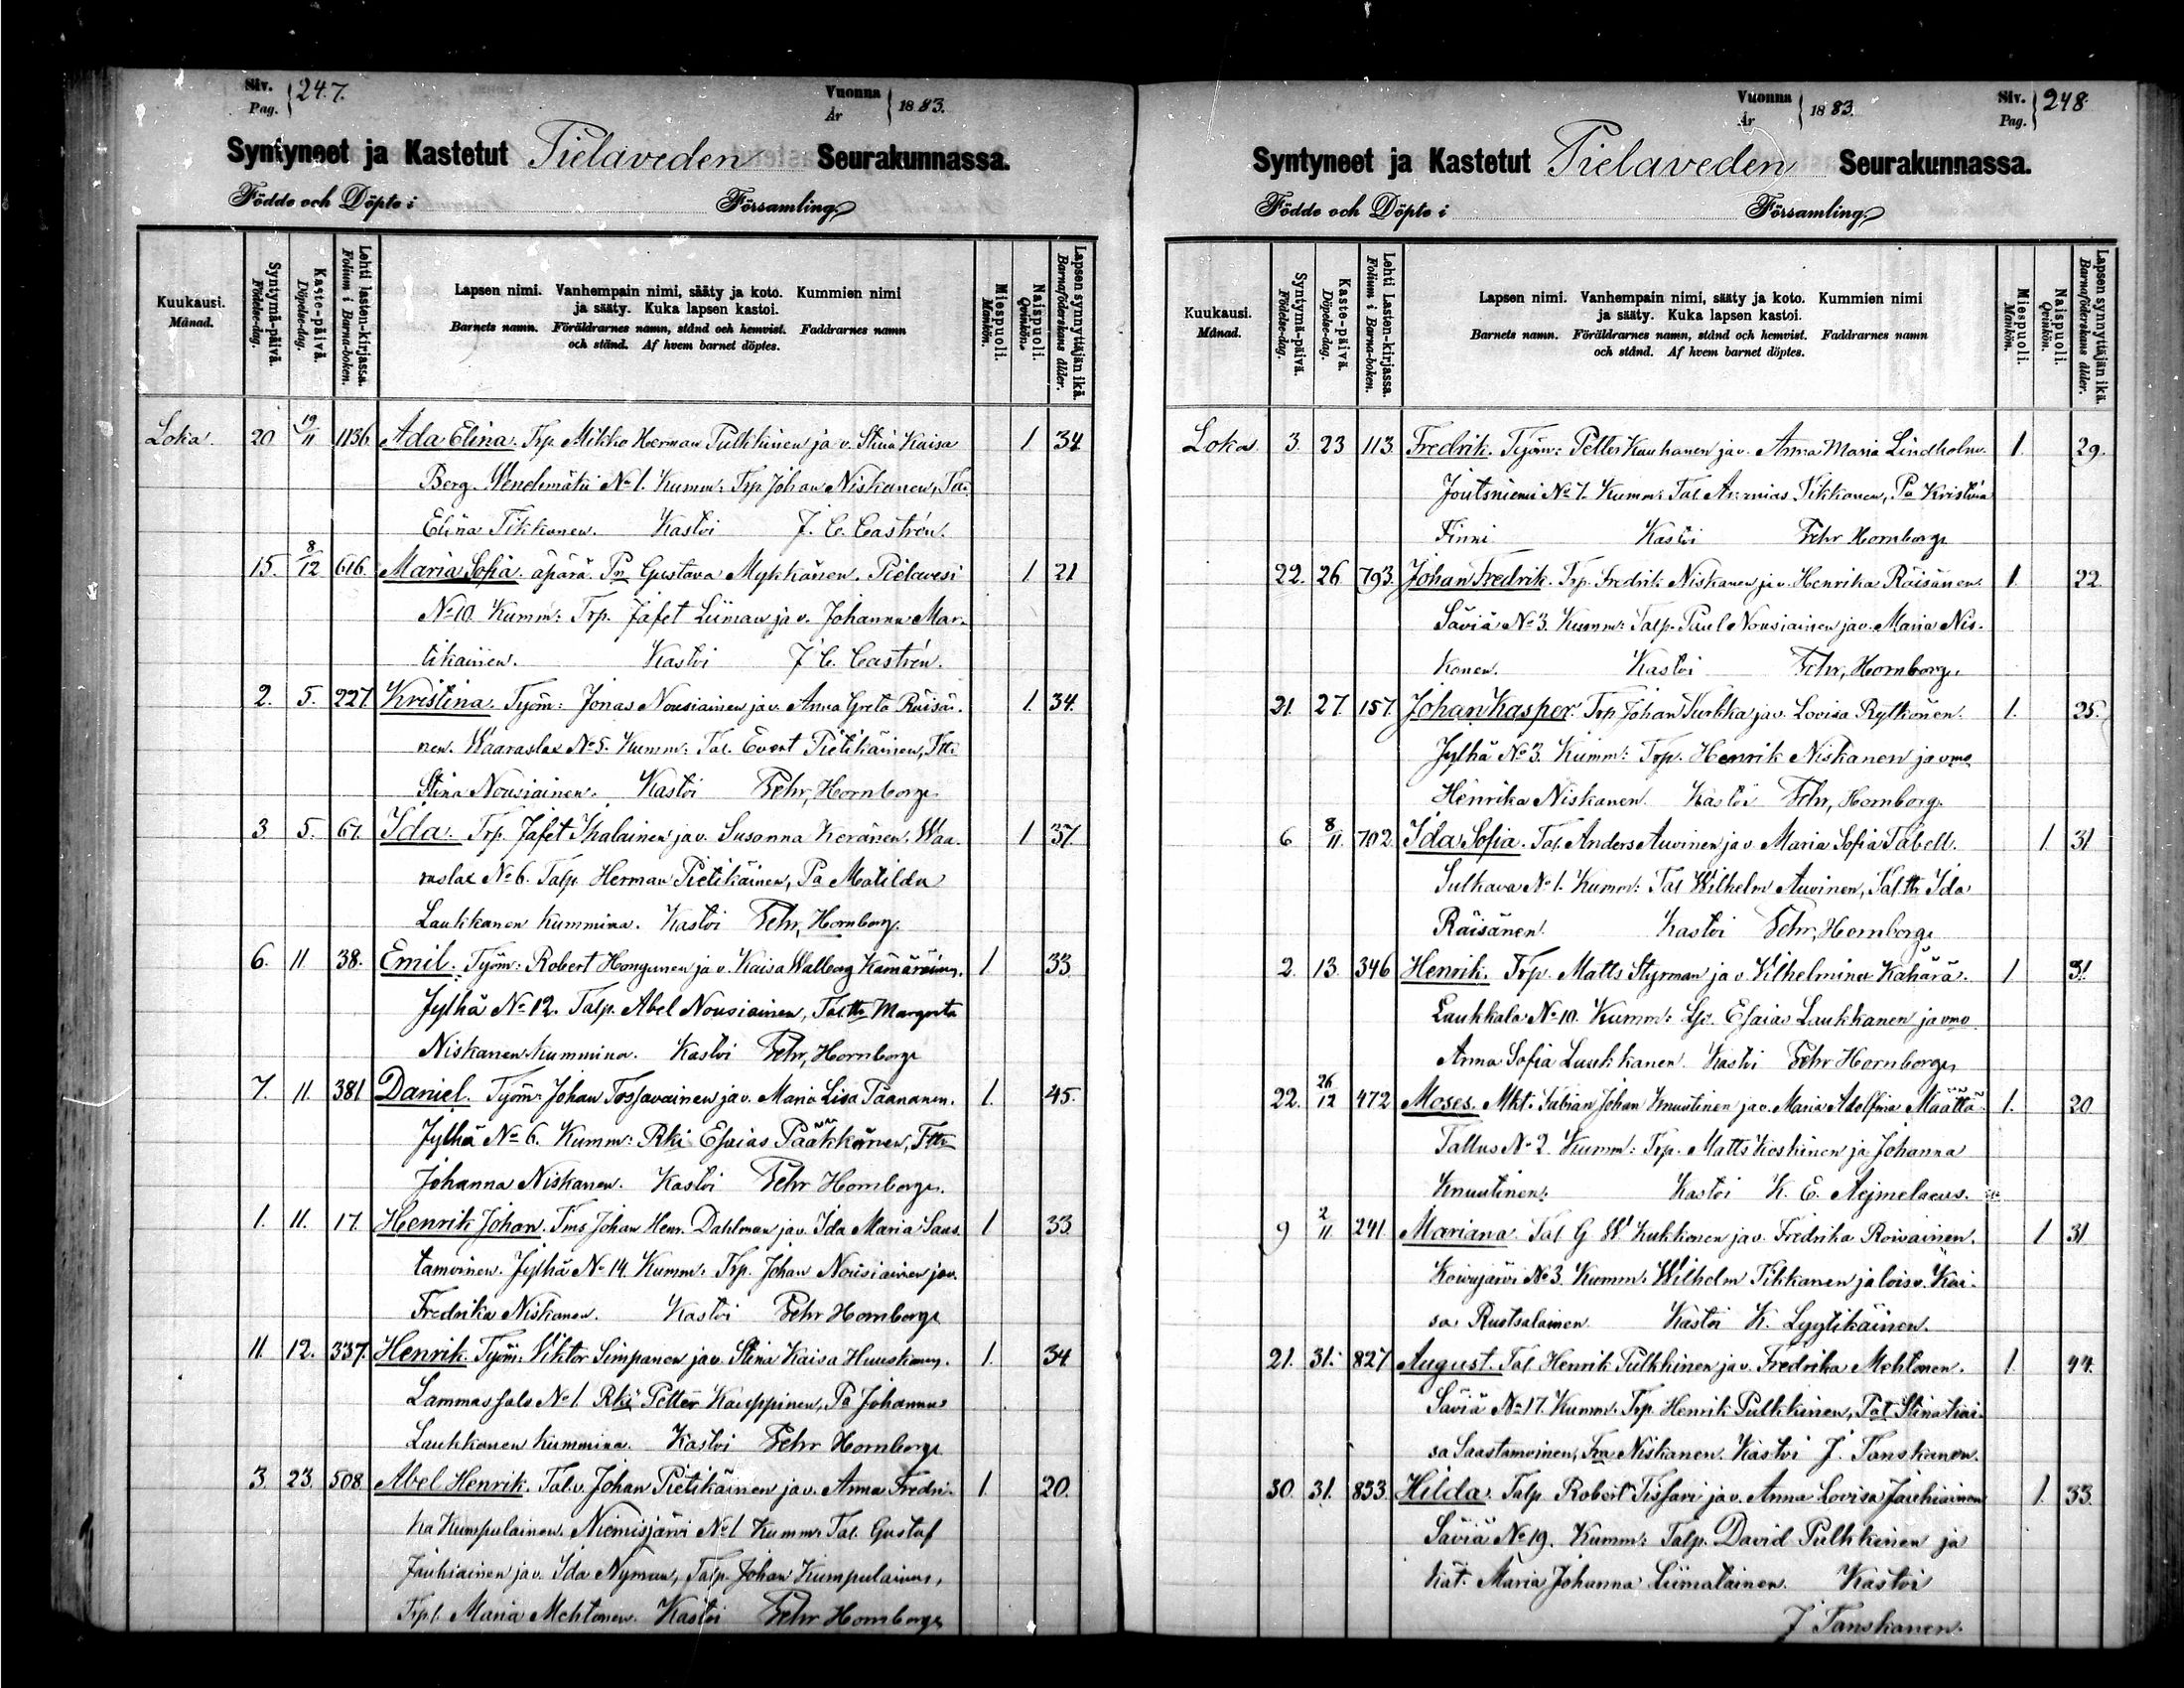 Siv. Pag. 247.
Vuonna År 1883.
Syntyneet ja Kastetut Pielaveden Seurakunnassa.
Födde och Döpte i Församling.
Kuukausi. Månad.
Syntymä-päivä. Födelse-dag.
Kaste-päivä. Döpelse-dag.
Lehti lasten-kirjassa. Folium i Barna-boken.
Lapsen nimi. Vanhempain nimi, sääty ja koto. Kummien nimi
ja sääty. Kuka lapsen kastoi.
Barnets namn. Föräldrarnes namn, stånd och hemvist. Faddrarnes namn
och stånd. Af hvem barnet döptes.
Miespuoli. Mankön.
Naispuoli. Qvinkön.
Lapsen synnyttäjän ikä. Barnaföderskans ålder.
Loka. 20 19/11 1136. Ada Elina. Trp. Mikko Herman Pulkkinen ja v. Stina Kaisa 1 34
Berg. Wendemäki No 1. Kumm: Trp. Johan Niskanen,
Elina Tikkanen. Kastoi J. C. Castrén.
15. 8/12 616. Maria Sofia. äpärä. Pn Gustava Mykkänen. Pielavesi 1 21
No 10 Kumm: Trp. Jafet Liiman ja v. Johanna Mar-
tikainen. Kastoi J C. Castrén.
2. 5. 227 Kristina. Työm: Jonas Nousiainen ja v. Anna Greta Räisä- 1 34.
nen. Waaraslax No 5. Kumm: Tal. Evert Pietikäinen,
Stina Nousiainen. Kastoi Fehr, Hornborg.
3 5. 67. Ida. Trp. Jafet Ikalainen ja v. Susanna Keränen. Waa- 1 37.
raslax No 6. Talp. Herman Pietikäinen, Pa Matilda
Laukkanen kummina. Kastoi Fehr, Hornborg.
6. 11 38. Emil. Työm: Robert Hongunen ja v. Kaisa Walborg Kämäräinen. 1 33
Jylhä No 12. Talp. Abel Nousiainen, Taltr Margreta
Niskanen kummina. Kastoi Fehr, Hornborg
7. 11. 381 Daniel. Työm: Johan Tossavainen ja v. Maria Lisa Paananen. 1. 45.
Jylhä No 6. Kumm: Rki Esaias Pääkkönen,
Johanna Niskanen. Kastoi Fehr Hornborg.
1. 11. 17. Henrik Johan. Johan Henr. Dahlman ja v. Ida Maria Saas- 1 33
tamoinen. Jylhä No 14. Kumm: Trp. Johan Nousiainen ja v.
Fredrika Niskanen. Kastoi Fehr Hornborg
11. 12. 337. Henrik. Työm. Viktor Simpanen ja v. Stina Kaisa Huuskonen. 1. 34
Lammassalo No 1. Rki Petter Kauppinen, Pa Johanna
Laukkanen kummina. Kastoi Fehr Hornborg
3. 23. 508 Abel Henrik. Tal.v. Johan Pietikäinen ja v. Anna Fredri- 1. 20.
ka Kumpulainen. Niemisjärvi No 1. Kumm: Tal. Gustaf
Jauhiainen ja v. Ida Nyman, Talp. Johan Kumpulainen,
Trpt. Maria Mehtonen. Kastoi Fehr Hornborg
Vuonna År 1883.
Siv. Pag. 248.
Syntyneet ja Kastetut Pielaveden Seurakunnassa.
Födde och Döpte i Församling.
Kuukausi. Månad.
Syntymä-päivä. Födelse-dag.
Kaste-päivä. Döpelse-dag.
Lehti Lasten-kirjassa. Folium i Barna-boken.
Lapsen nimi. Vanhempain nimi, sääty ja koto. Kummien nimi
ja sääty. Kuka lapsen kastoi.
Barnets namn. Föräldrarnes namn, stånd och hemvist. Faddrarnes namn
och stånd. Af hvem barnet döptes.
Miespuoli. Mankön.
Naispuoli. Qvinkön.
Lapsen synnyttäjän ikä. Barnaföderskans ålder.
Loka. 3. 23 113. Fredrik. Työm: Petter Kauhanen ja v. Anna Maria Lindholm. 1. 29.
Joutsniemi No 7. Kumm: Tal. Tikkanen, Pa Kristina
Finni Kastoi Fehr Hornborg
22. 26 793. Johan Fredrik. Trp. Fredrik Niskanen ja v. Henrika Räisänen. 1. 22.
Säviä No 3. Kumm: Talp. Paul Nousiainen ja v. Maria Nis-
kanen. Kastoi Fehr, Hornborg.
21. 27. 157. Johan Kasper. Trp. Johan Kurkka ja v. Lovisa Rytkönen. 1. 25.
Jylhä No 3. Kumm: Trp. Henrik Niskanen ja vmo
Henrika Niskanen. Kastoi Fehr, Hornborg.
6 8/11. 702 Ida Sofia. Tal. Anders Auvinen ja v. Maria Sofia Tabell. 1. 31
Sulkava No 1. Kumm: Tal Wilhelm Auvinen, Tal.tr Ida
Räisänen. Kastoi Fehr, Hornborg
2. 13. 346 Henrik. Trp. Matts Styrman ja v. Vilhelmina Kähärä. 1 31.
Laukkala No 10. Kumm: Esaias Laukkanen ja vmo
Anna Sofia Laukkanen. Kastoi Fehr Hornborg
22. 26/12 472 Moses. Mkt. Fabian Johan Knuutinen ja v. Maria Adelfina Määttä. 1. 20
Tallus No 2. Kumm: Trp. Matts Koskinen ja Johanna
Knuutinen. Kastoi K. E. Aejmelaeus.
9 2/11. 241. Mariana. Tal G. W. Kukkonen ja v. Fredrika Roivainen. 1 31
Koivujärvi No 3. Kumm: Wilhelm Tikkanen ja lois v. Kai-
sa Ruotsalainen. Kastoi K. Lyytikäinen.
21. 31. 827 August. Tal. Henrik Pulkkinen ja v. Fredrika Mehtonen. 1. 44.
Säviä No 17. Kumm: Trp. Henrik Pulkkinen, Stina Kai-
sa Saastamoinen, Niskanen. Kastoi J. Tanskanen.
30. 31. 853. Hilda. Talp. Robert Tissari ja v. Anna Lovisa Jauhiainen 1. 33.
Säviä No 19. Kumm: Talp. David Pulkkinen ja
Maria Johanna Liimatainen. Kastoi
J Tanskanen.